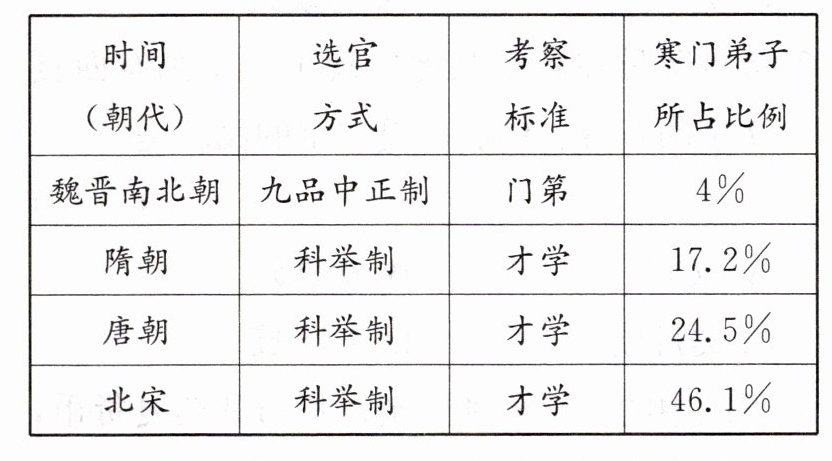 时间 选官 考察 寒门弟子
(朝代) 方式 标准 所占比例
魏晋南北朝 九品中正制 门第 4%
隋朝 科举制 才学 17.2%
唐朝 科举制 才学 24.5%
北宋 科举制 才学 46.1%